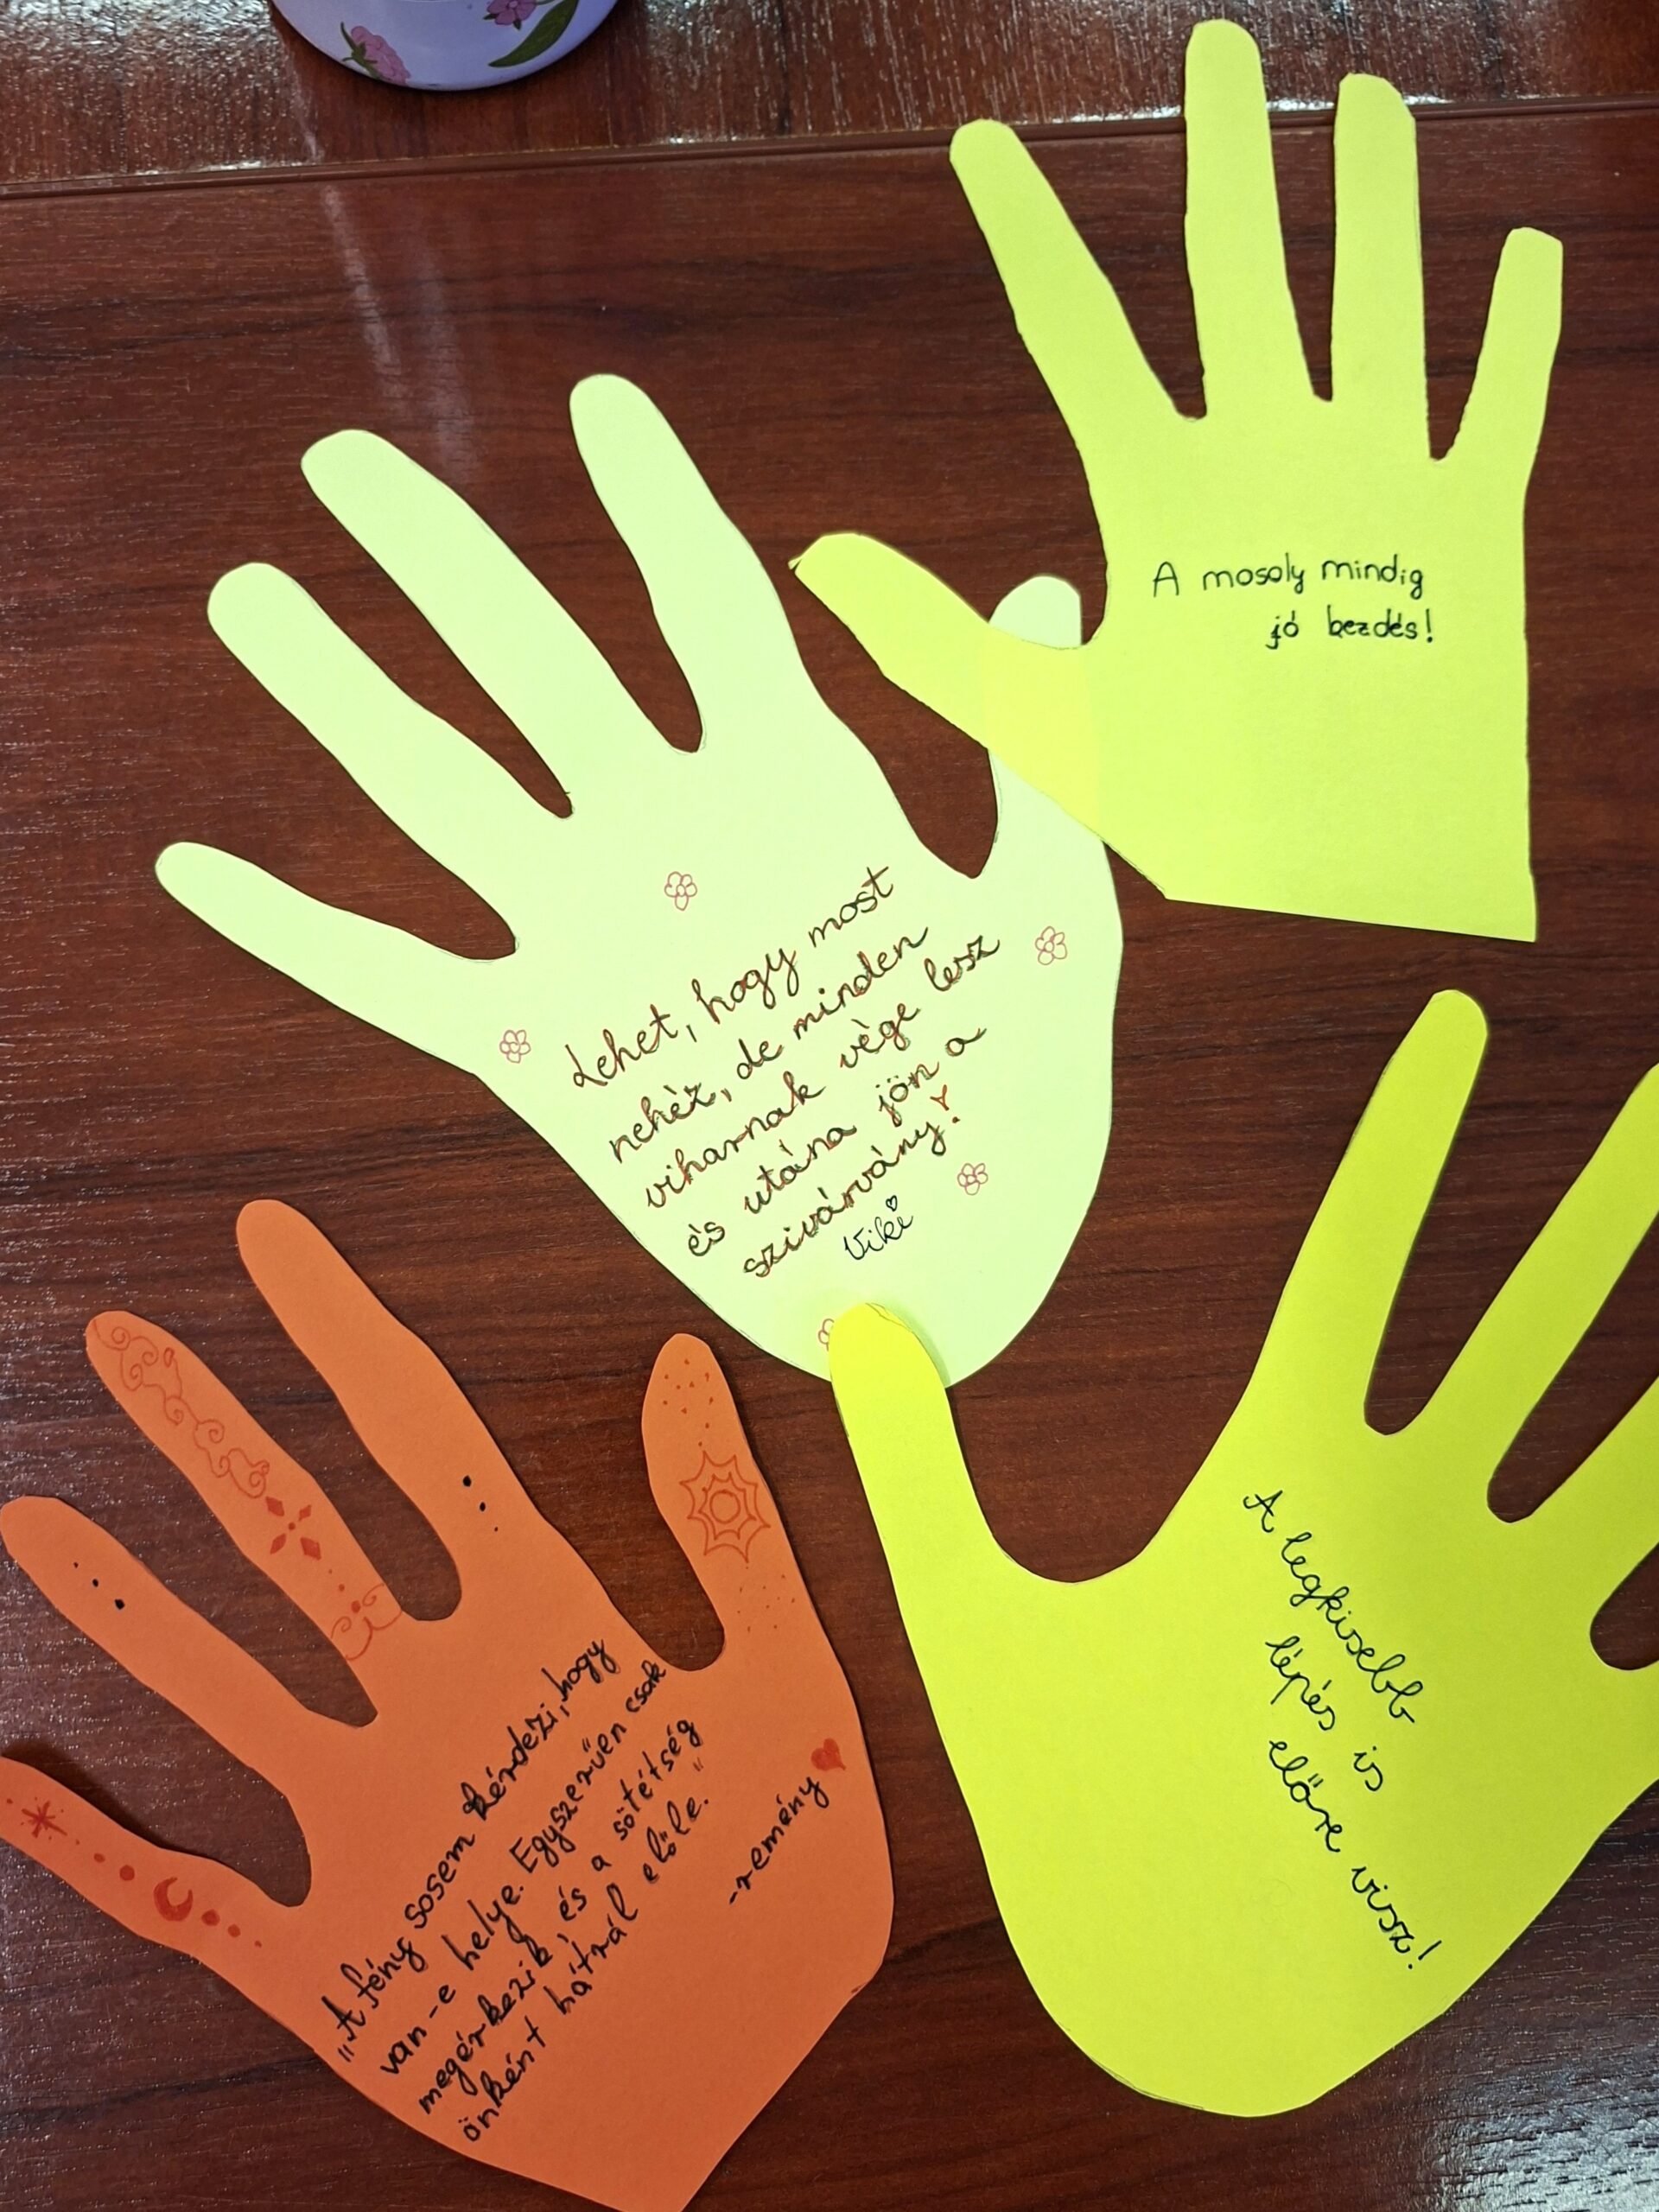 A mosoly mindig
jó kezdés!
Lehet, hogy most
nehéz, de minden
viharnak vége lesz
és utána jön a
szivárvány!
Viki
„A fény sosem kérdezi, hogy
van-e helye. Egyszerűen csak
megérkezik és a sötétség
önként hátrál előle."
-remény
A legkisebb
lépés is
előre visz!